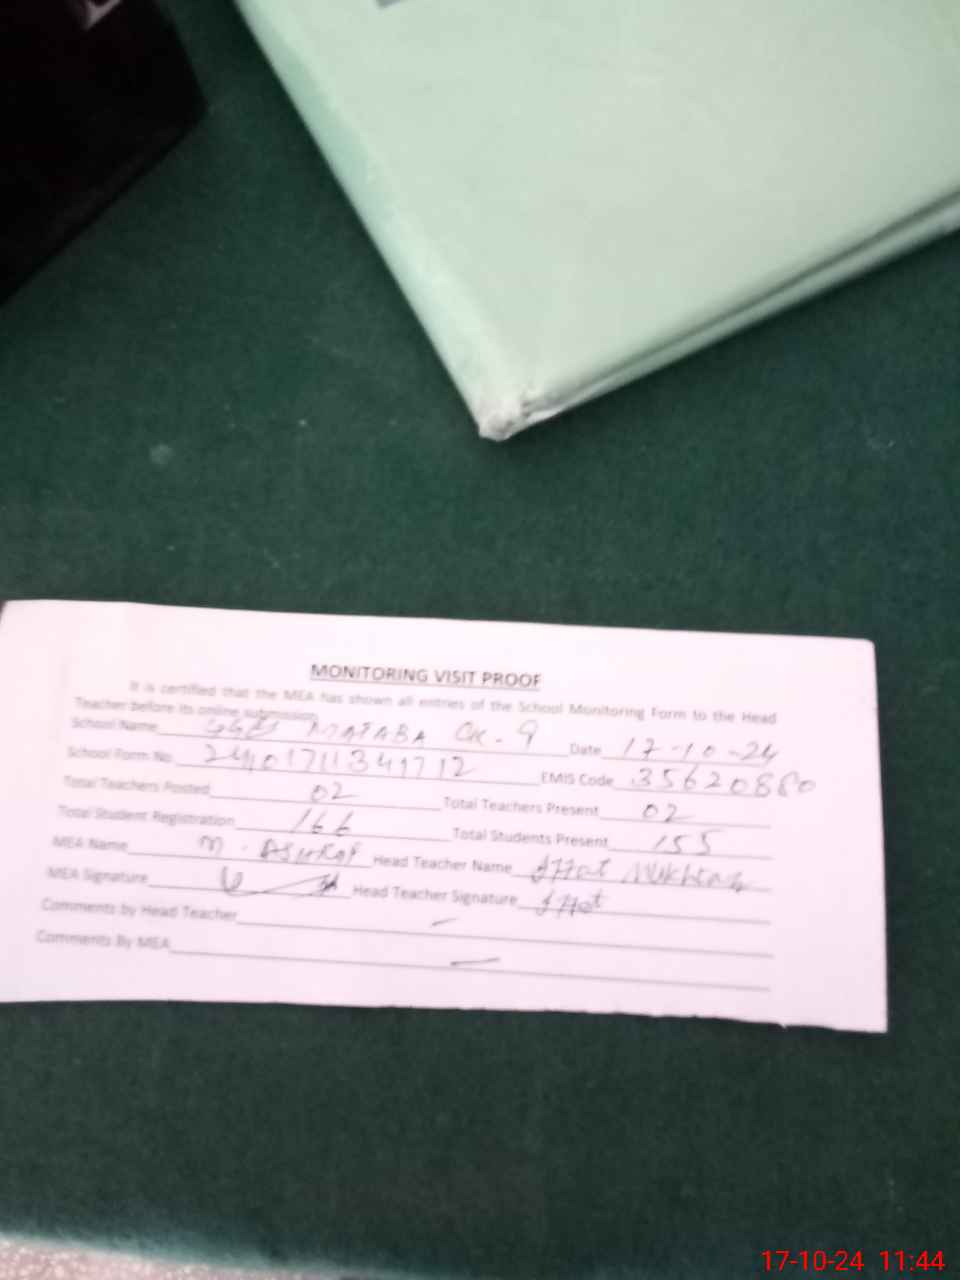 MONITORING VISIT PROOF
It is certified that the MEA has shown all entries of the School Monitoring Form to the Head
Teacher before its online submission
School Name Date 17-10-24
School Form No. EMIS Code 35620880
Total Teachers Posted 02 Total Teachers Present 02
Total Student Registration 166 Total Students Present 155
MEA Name M. ASHRAF Head Teacher Name Iffat Mukhtar
MEA Signature Head Teacher Signature Iffat
Comments by Head Teacher
Comments By MEA
17-10-24 11:44